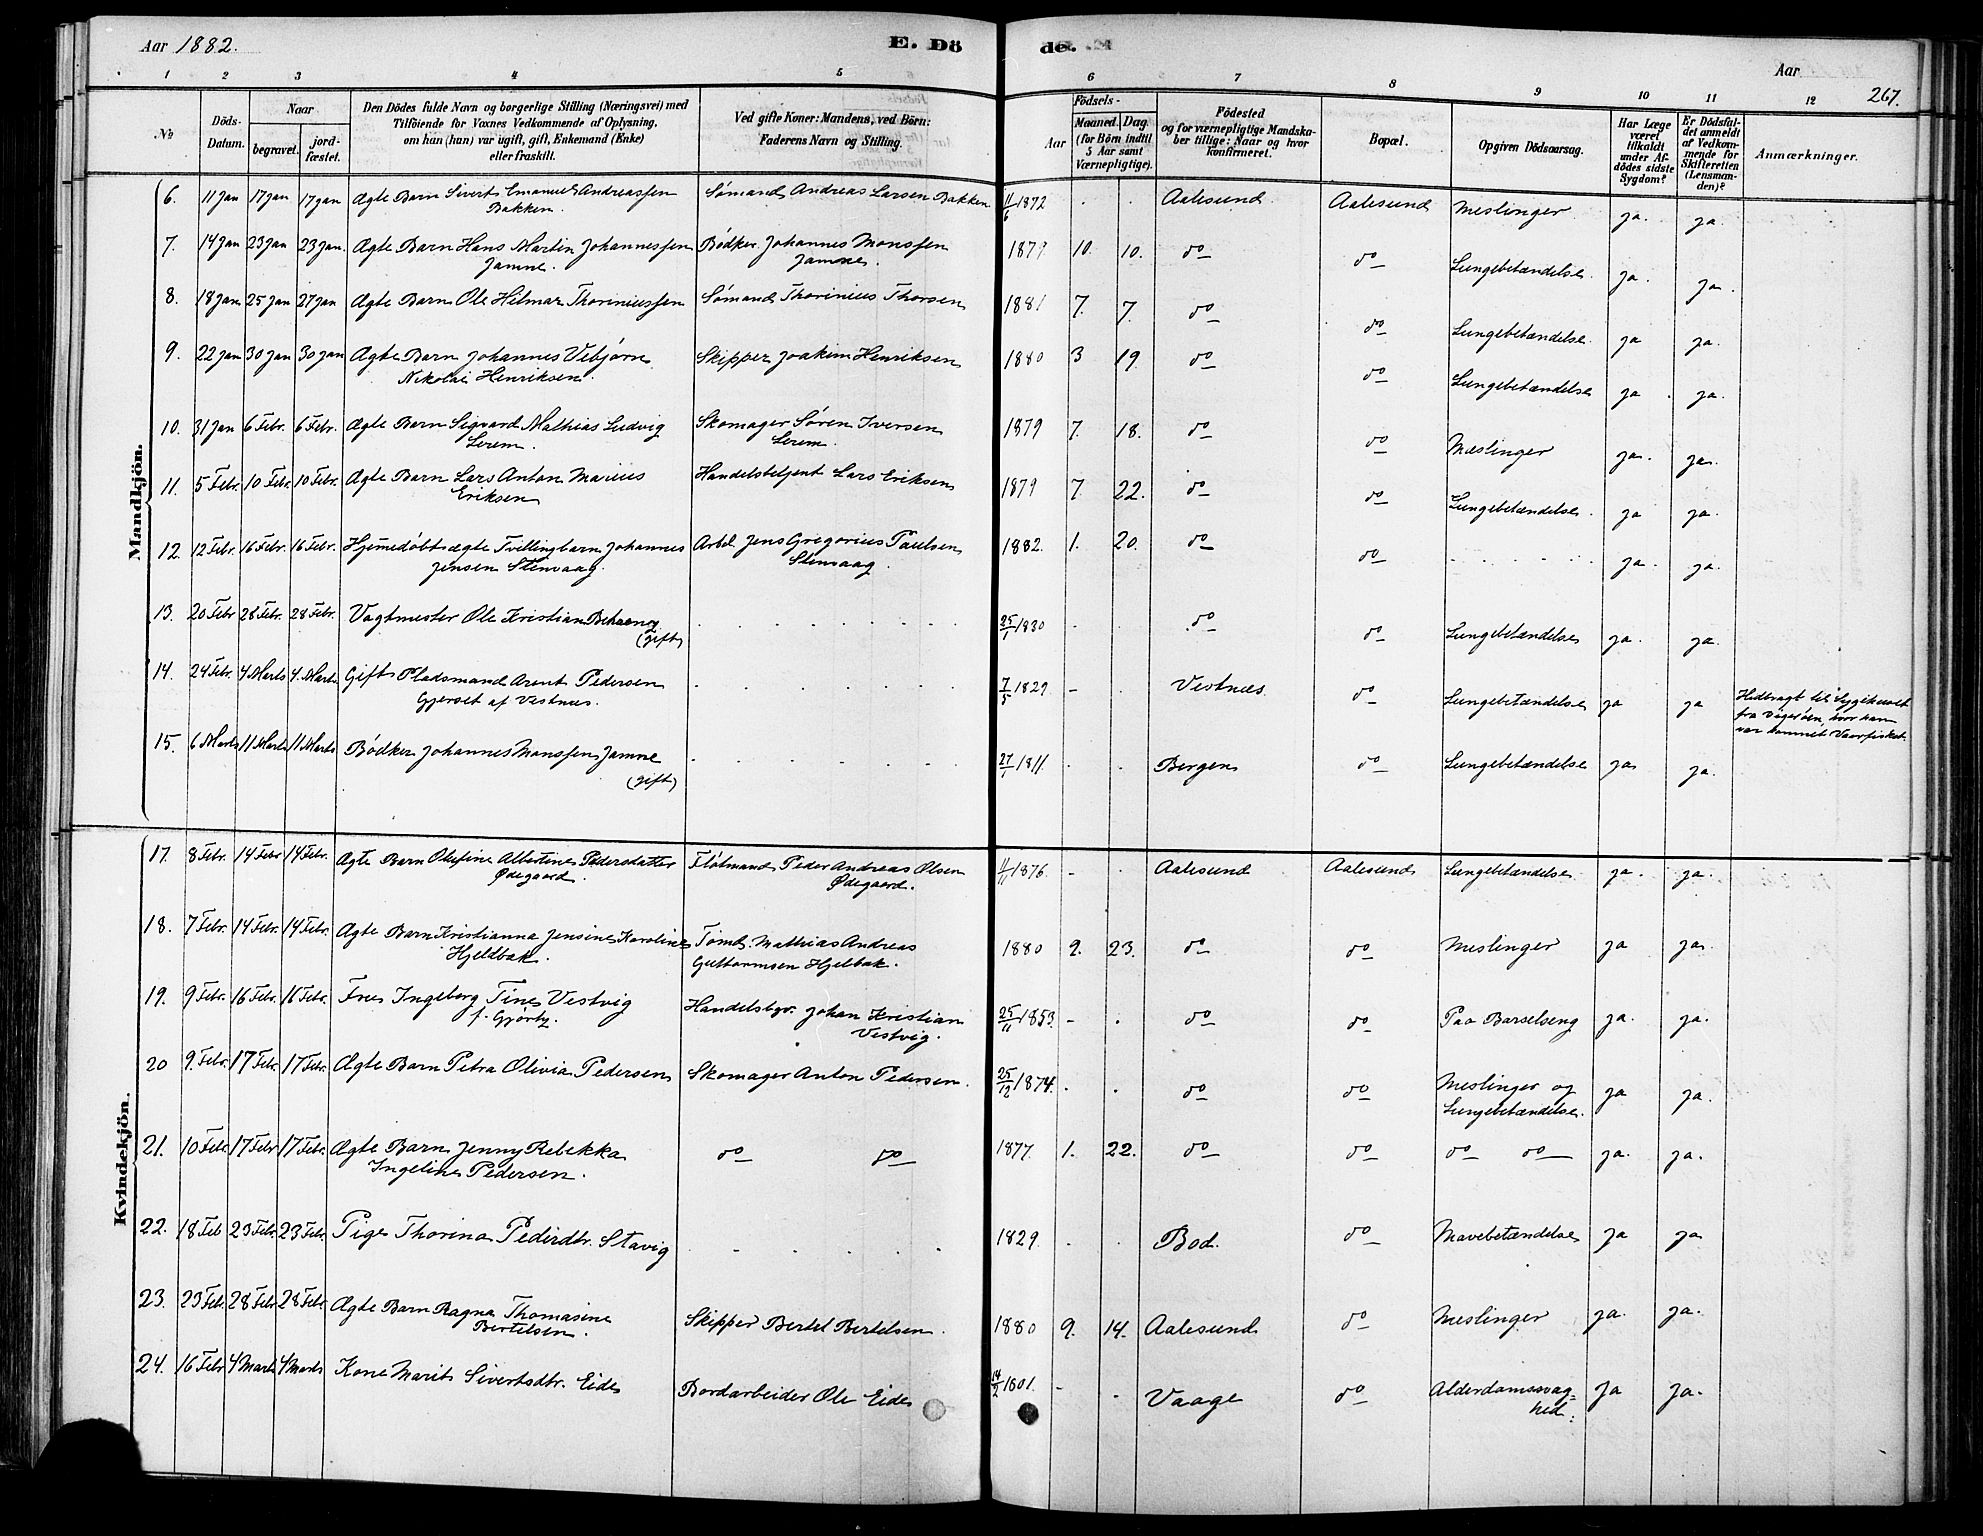 Aar 1882.
E. Dö
de.
Aar
267.
1 2 3 4 5 6 7 8 9 10 11 12
№
Döds-Datum.
Naar
begravet.
jord-fæstet.
Den Dödes fulde Navn og borgerlige Stilling (Næringsvei) med
Tilföiende for Voxnes Vedkommende af Oplysning,
om hun (han) var ugift, gift, Enkemand (Enke)
eller fraskilt.
Ved gifte Koner: Mandens, ved Börn:
Faderens Navn og Stilling.
Födsels-
Aar
Maaned. Dag.
(for Börn indtil
5 Aar samt
Værnepligtige).
Födested
og for værnepligtige Mandska-
ber tillige: Naar og hvor
konfirmeret.
Bopæl.
Opgiven Dödsaarsag.
Har Læge
været
tilkaldt
under Af-
dödes sidste
Sygdom?
Er Dödsfal-
det anmeldt
af Vedkom-
mende for
Skifteretten
(Lensman-
den)?
Anmærkninger.
Mandkjön.
6. 11 Jan 17 Jan 17 Jan Ægte Barn Sivert Emanuel Andreassen Sømand Andreas Larsen Bakken 11/6 1872 Aalesund Aalesund Meslinger ja. ja.
Bakken.
7. 14 Jan 23 Jan 23 Jan. Ægte Barn Hans Martin Johannessen Bødker Johannes Monssen 1879 10. 10. do do Lungebetændelse ja. ja.
Jamne. Jamne.
8. 18 Jan 25 Jan 27 Jan Ægte Barn Ole Hilmar Thoriniussen Sømand Thorinius Thorsen 1881 7. 7. do do Lungebetændelse. ja ja.
9. 22 Jan 30 Jan 30 Jan Ægte Barn Johannes Vebjørn Skipper Joakim Henriksen 1880 3 19. do do Lungebetændelse ja. ja.
Nikolai Henriksen.
10. 31 Jan 6 Febr. 6 Febr. Ægte Barn Sigvard Mathias Ludvig Skomager Søren Iversen 1879 7. 18. do do Meslinger ja. ja.
Lerem. Lerem.
11. 5 Febr. 10 Febr. 10 Febr. Ægte Barn Lars Anton Marius Handelsbetjent Lars Eriksen 1879 7. 22. do do Lungebetændelse. ja ja.
Eriksen
12. 12 Febr. 16 Febr. 16 Febr. Hjemmedøbt ægte Tvillingbarn Johannes Arbd. Jens Gregorius Paulsen 1882. 1. 20. do do ja. ja.
Jensen Stenvaag. Stenvaag.
13. 20 Febr 28 Febr. 28 Febr. Vagtmester Ole Kristian 25/1 1830 do do Lungebetændelse ja. ja.
(gift)
14. 24 Febr. 4 Marts 4. Marts. Gift Pladsmand Arent Pedersen 7/5 1829. Vestnæs. do Lungebetændelse ja ja
Gjerset af Vestnæs.
fra Vigerøen, hvor han
var kommet Vaarfisket.
15. 6 Marts 11 Marts 11 Marts Bødker Johannes Monssen Jamne 27/1 1811. Bergen do Lungebetændelse ja ja.
(gift)
Kvindekjön.
17. 8 Febr. 14 Febr 14 Febr. Ægte Barn Olufine Albertine Pedersdatter Flötmand Peder Andreas Olsen 11/11 1876. Aalesund Aalesund Lungebetændelse. ja. ja.
Ødegaard. Ødegaard.
18. 7 Febr. 14 Febr. 14 Febr. Ægte Barn Kristianna Jensine Karoline Tømd. Mathias Andreas 1880 9. 23. do do Meslinger ja ja.
Hjeldbak. Guttormsen Hjelbak.
19. 9 Febr. 16 Febr. 16 Febr. Frue Ingeborg Tine Vestvig Handelsbgr. Johan Kristian 25/11 1853. do do Paa Barselseng ja. ja.
f. Gjørtz. Vestvig.
20 9. Febr. 17 Febr. 17 Febr. Ægte Barn Petra Olivia Pedersen Skomager Anton Pedersen. 25/12 1874. do do Meslinger og ja ja.
Lungebetændelse.
21. 10 Febr 17 Febr 17 Febr. Ægte Barn Jenny Rebekka do do 1877. 1. 22. do do do do ja. ja.
Ingeline Pedersen.
22. 18 Feb 23 Febr. 23 Febr. Pige Thorina Pedersdtr. Stavig 1829. Bod. do Mavebetændelse ja ja
23. 23 Feb. 28 Febr 28 Febr Ægte Barn Ragna Thomasine Skipper Bertel Bertelsen. 1880 9. 14. Aalesund do Meslinger ja. ja.
Bertelsen.
24. 16 Febr 4 Marts 4 Marts Kone Marit Sivertsdtr. Eide Bordarbeider Ole Eide 14/2 1801. Vaage do Alderdomssvag= ja ja.
hed.